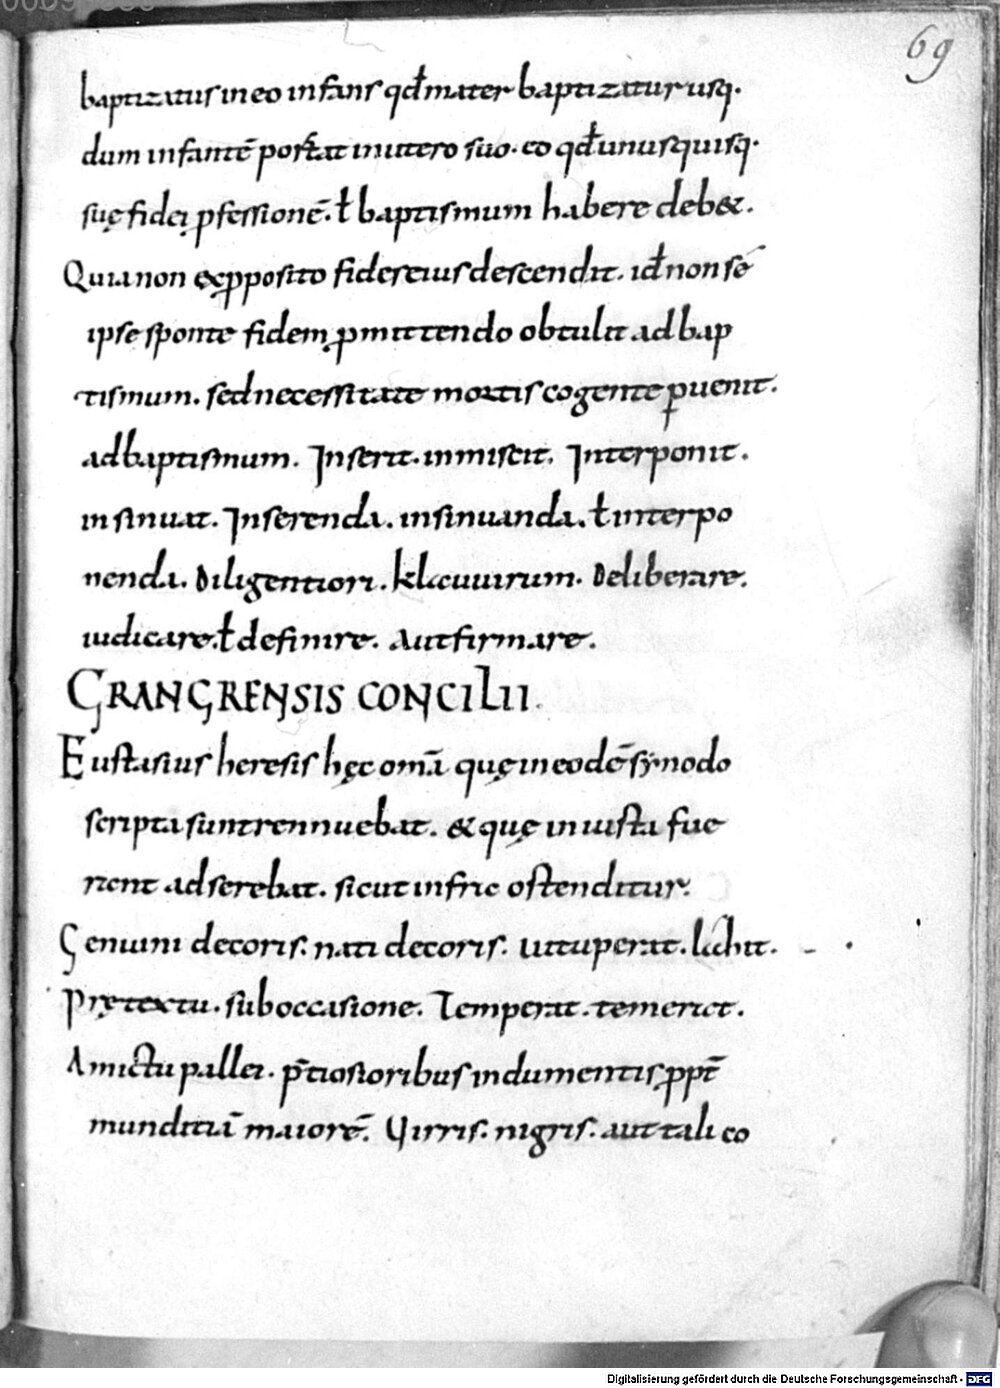 69
baptizatus in eo infans qđ mater baptizatur usq·
dum infantē portat in utero suo· eo qđ unusquisq·
suę fidei ꝓfessionē· ł baptismum habere deb&·
Quia non ex ꝓposito fidei eius descendit· id non sē
ipse sponte fidem ꝓmittendo obtulit ad bap
tismum· sed necessitate mortis cogente ꝑuenit·
ad baptismum· Inserit· inmiscit· Interponit·
insinuat· Inserenda· insinuanda· ł interpo
nenda· Diligentiori· Deliberare·
iudicare· ł definire· Aut firmare·
GRANGRENSIS CONCILII·
Eustasius heresis hęc omā quę in eodē synodo
scripta sunt rennuebat· & quę iniusta fue
rent adserebat· sicut infrc ostenditur·
Genuini decoris· nati decoris· Uituperat·
Prętextu· sub occasione· Temperat· temerict·
Amictu pallei· p̄tiosioribus indumentis ꝓpt̄
munditiā maiorē· Cirris· nigris· aut tali co
Digitalisierung gefördert durch die Deutsche Forschungsgemeinschaft · DFG